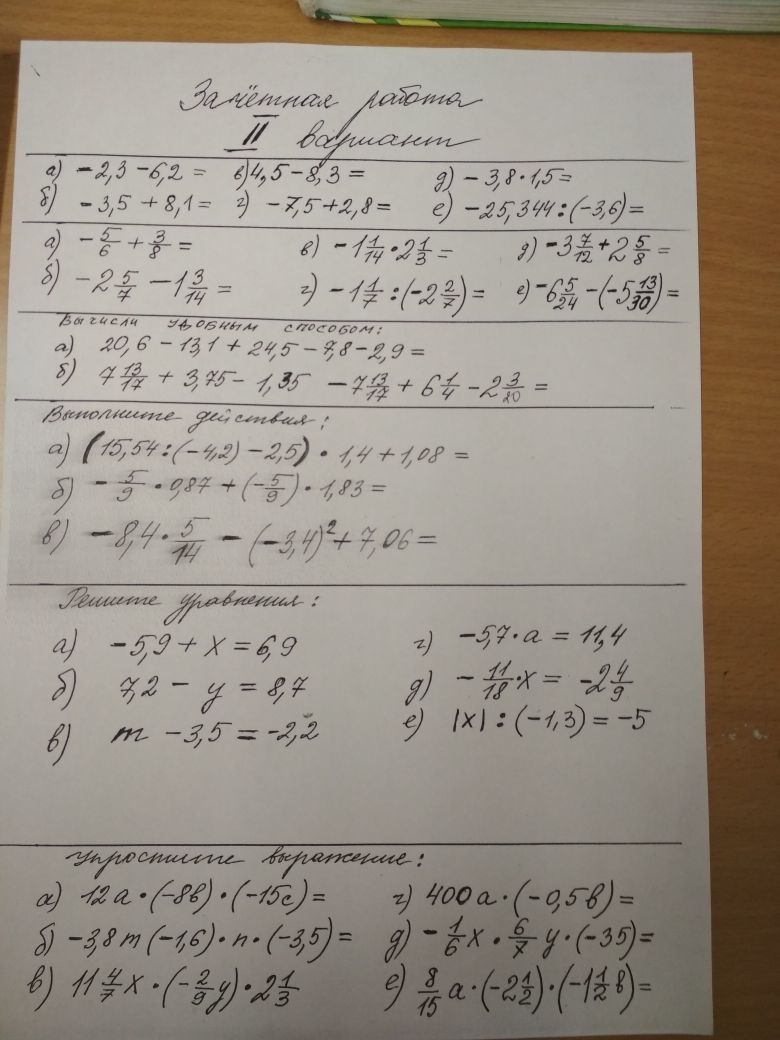 Зачётная работа
II вариант
а) -2,3 -6,2 = в) 4,5 -8,3 = д) -3,8·1,5=
б) -3,5 + 8,1 = г) -7,5+2,8 = е) -25,344:(-3,6)=
а) -5/6 + 3/8 = в) -1 1/14 · 2 1/3 = д) -3 7/12 + 2 5/8 =
б) -2 5/7 - 1 3/14 = г) -1 1/7 : (-2 2/7) = е) -6 5/24 - (-5 13/30)=
Вычисли удобным способом:
а) 20,6 - 13,1 + 24,5 - 7,8 - 2,9 =
б) 7 13/17 + 3,75 - 1,35 - 7 13/17 + 6 1/4 - 2 3/20 =
Выполните действия:
а) (15,54:(-4,2) - 2,5) · 1,4 + 1,08 =
б) -5/9 · 0,87 + (-5/9) · 1,83 =
в) -8,4 · 5/14 - (-3,4)² + 7,06 =
Решите уравнения:
а) -5,9 + x = 6,9 г) -5,7·a = 11,4
б) 7,2 - y = 8,7 д) -11/18·x = -2 4/9
в) m - 3,5 = -2,2 е) |x| : (-1,3) = -5
Упростите выражение:
а) 12a·(-8b)·(-15c)= г) 400a·(-0,5b)=
б) -3,8m(-1,6)·n·(-3,5)= д) -1/6x · 6/7y·(-35)=
в) 11 4/7x · (-2/9y) · 2 1/3 е) 8/15a·(-2 1/2)·(-1 1/2b)=